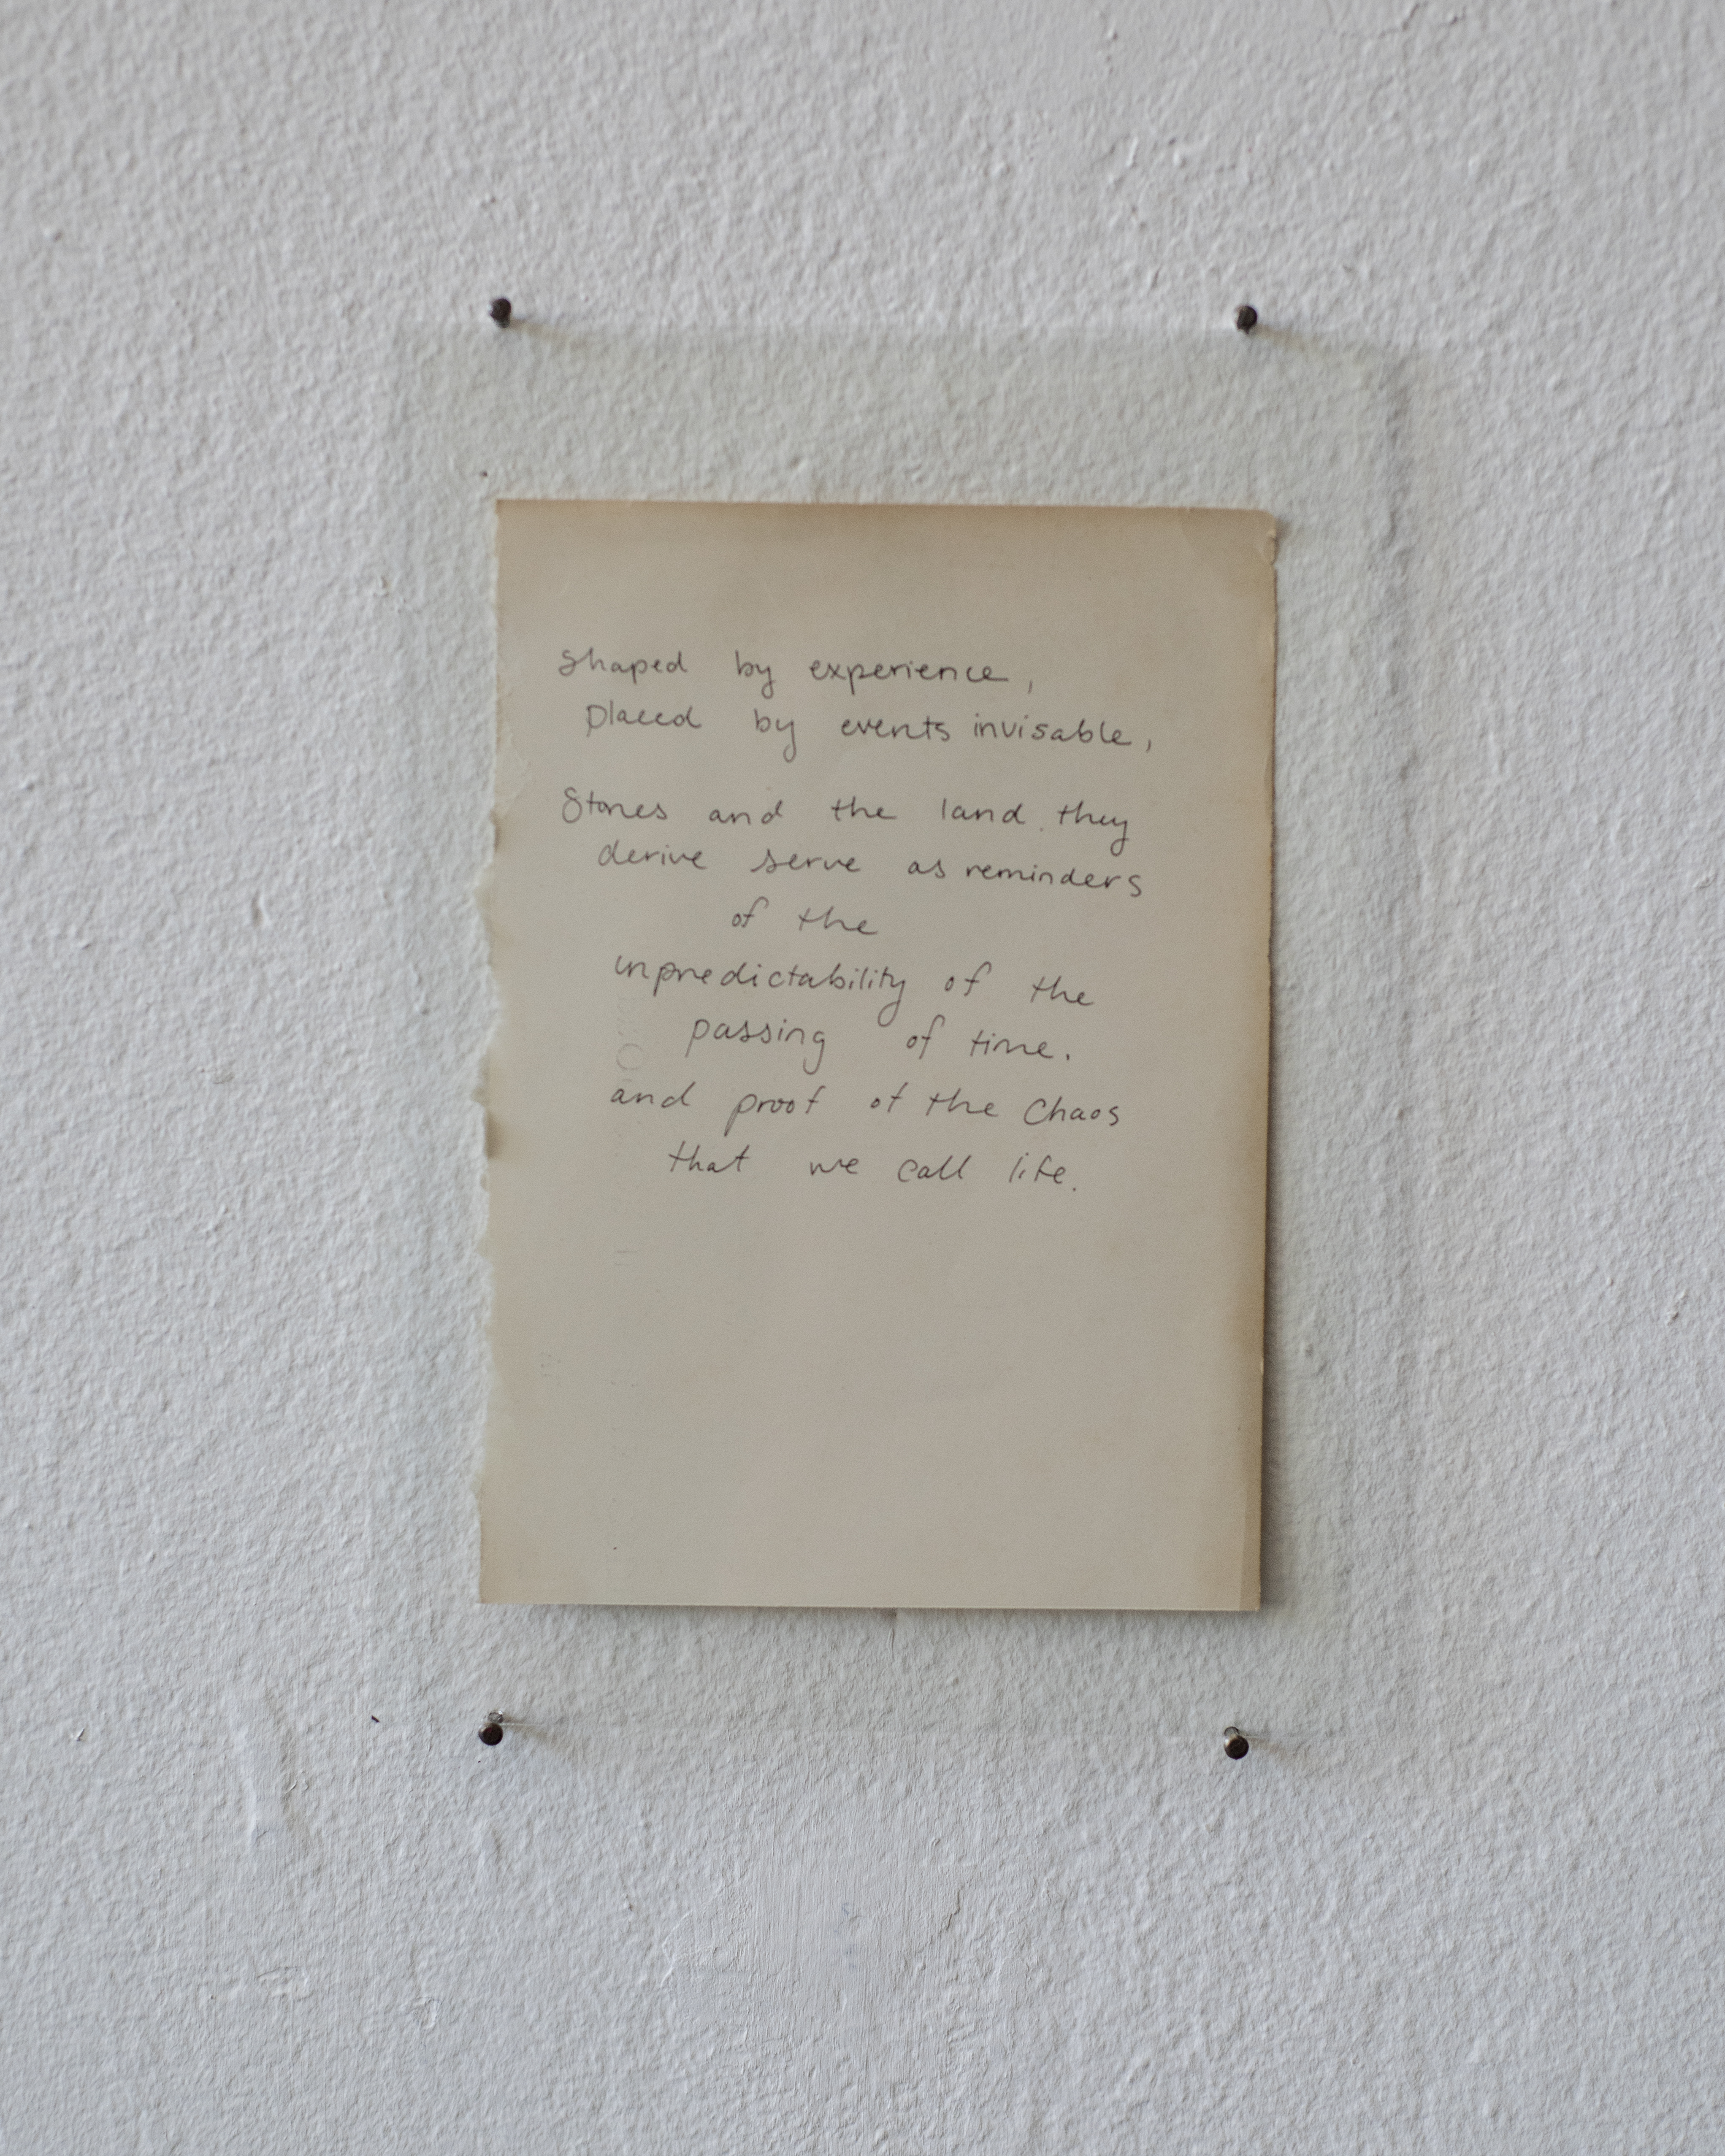 Shaped by experience,
placed by events invisable,
Stones and the land they
derive serve as reminders
of the
unpredictability of the
passing of time.
and proof of the Chaos
that we call life.